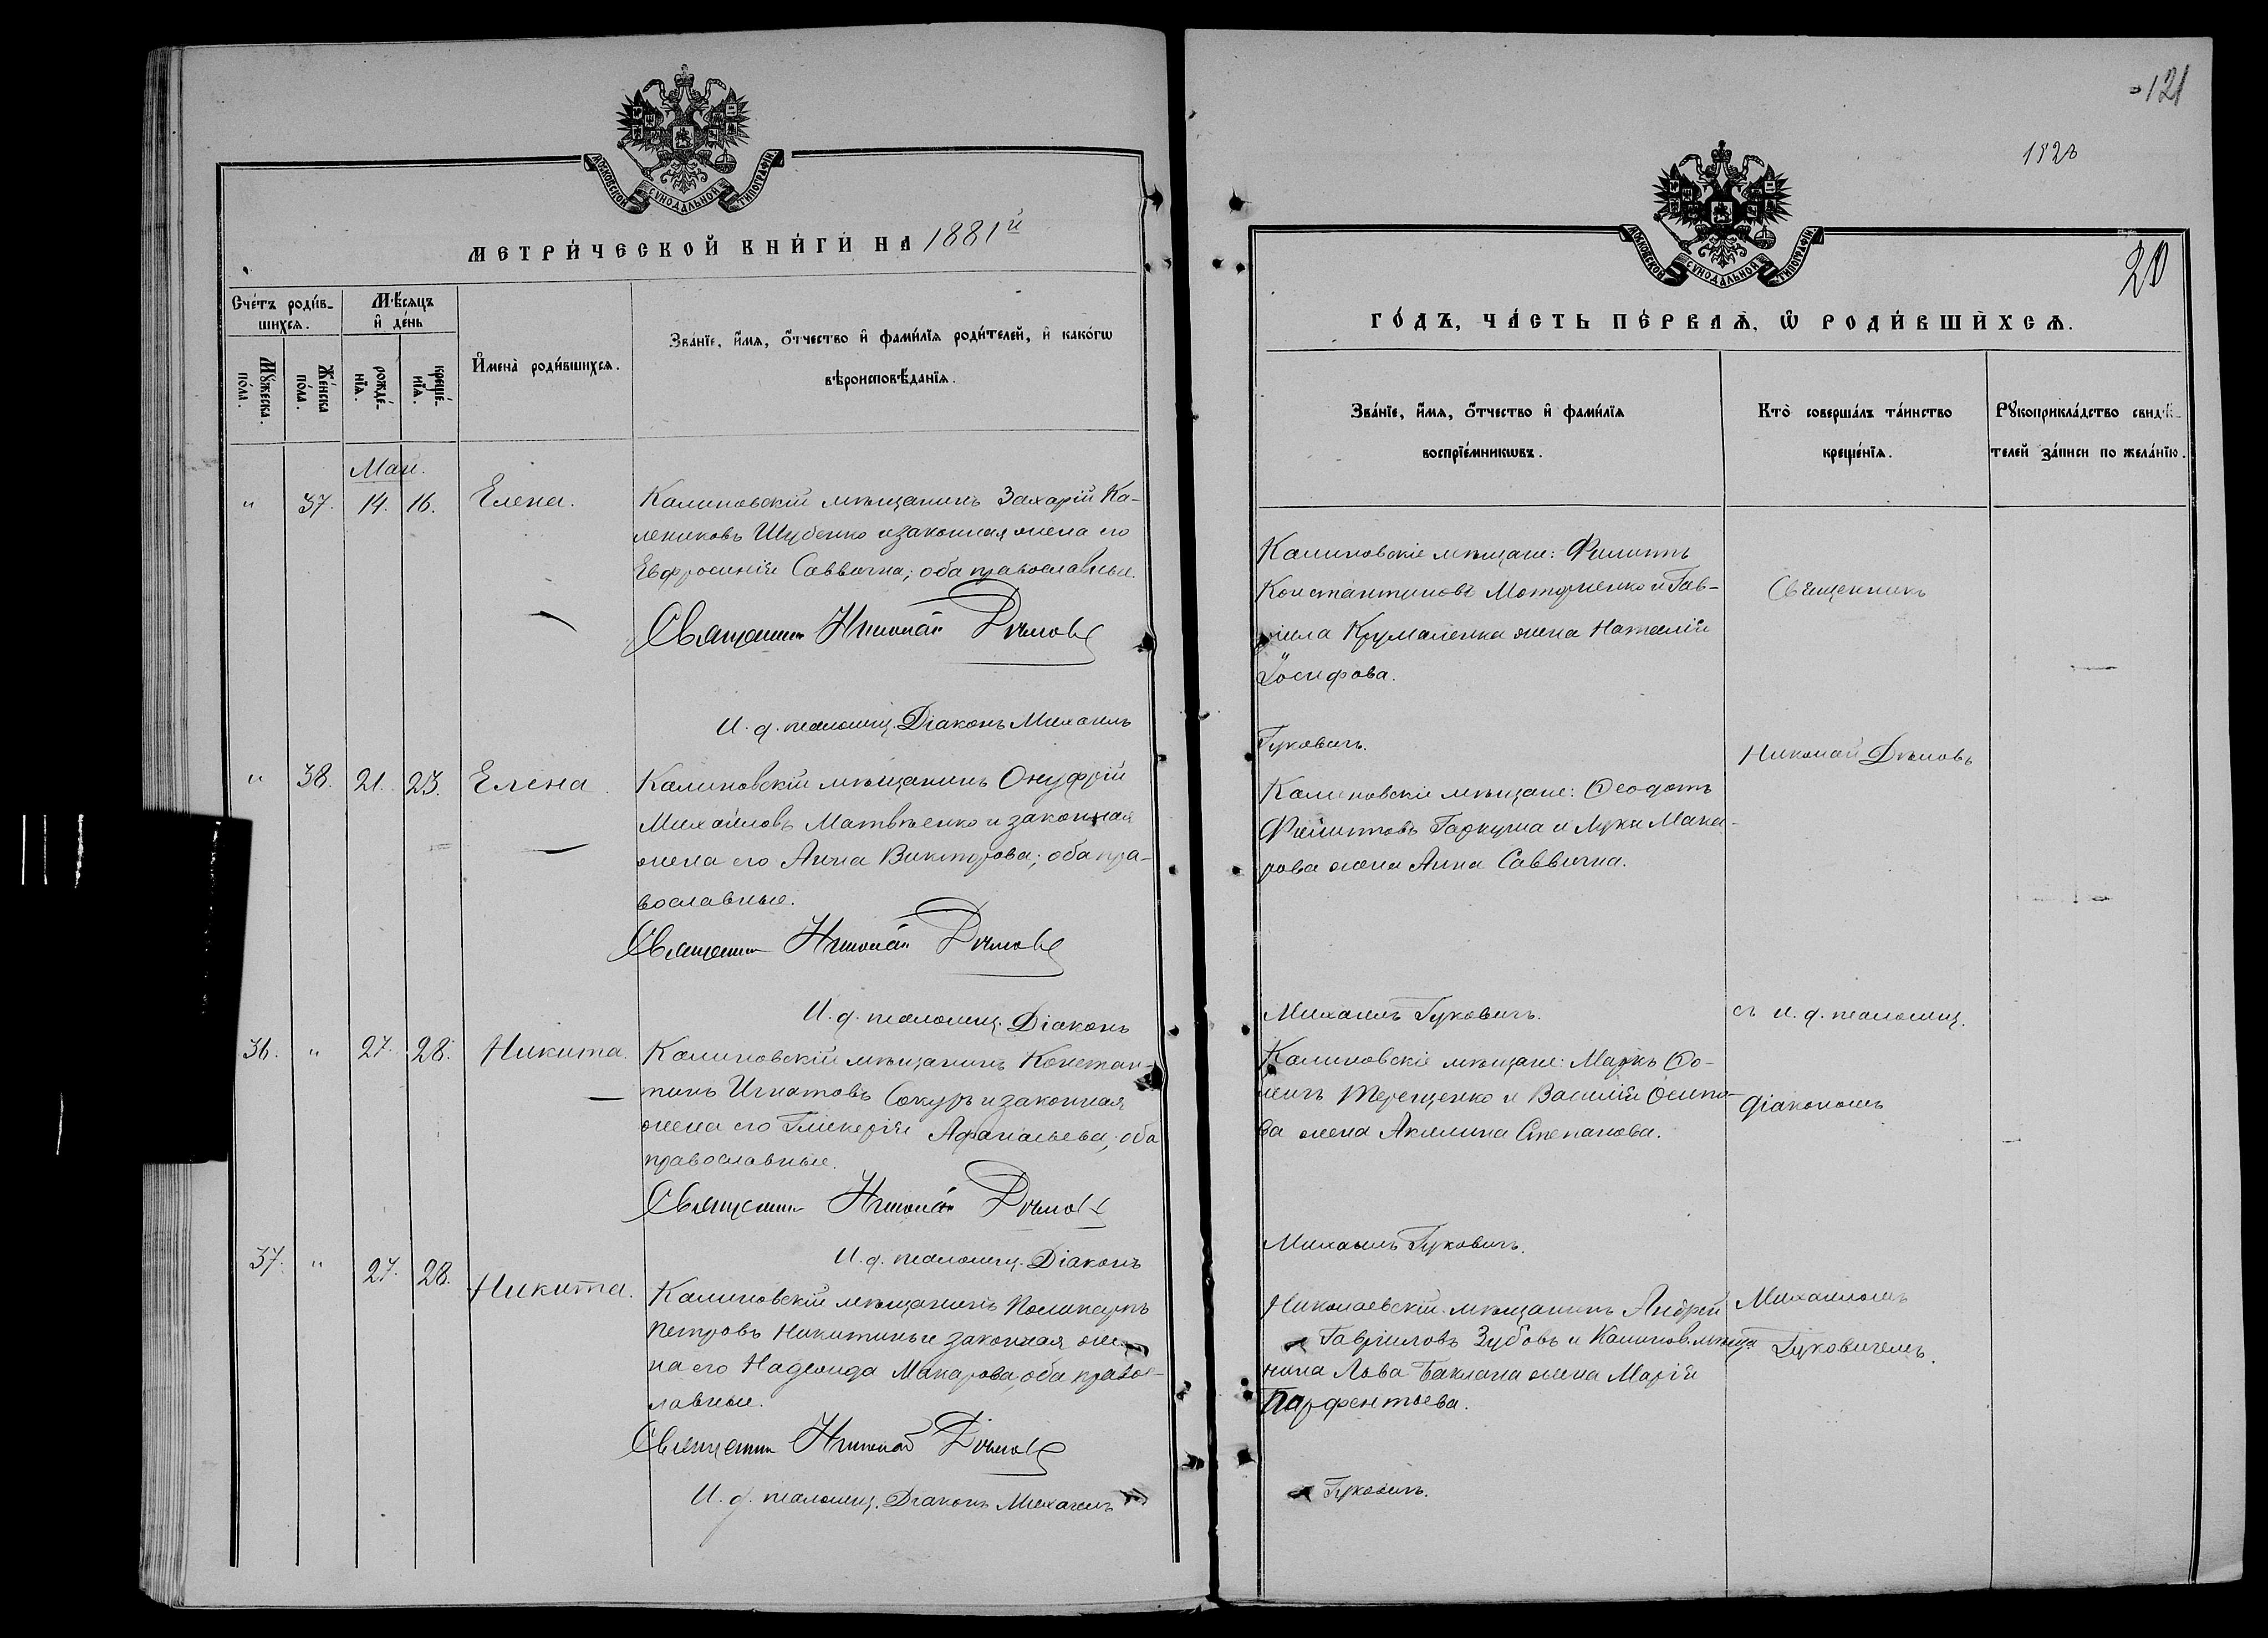 МОСКОВСКОЙ СУНОДАЛЬНОЙ ТИПОГРАФІИ.
МЕТРИ́ЧЕСКОЙ КНИ́ГИ НА 1881й
Сче́тъ роди́в-
шихсѧ.
Мѣ́сѧцъ
и҆ де́нь
И҆мена̀ роди́вшихсѧ.
Зва́нїе, и҆́мѧ, ѻ҆́тчество и҆ фами́лїѧ роди́телей, и҆ како́гѡ
вѣроисповѣ́данїѧ.
Мꙋ́жеска
по́ла.
Же́нска
по́ла.
рожде́-
нїѧ.
креще́-
нїѧ.
Маи.
" 37. 14. 16. Елена.
Калиновскій мѣщанинъ Захарій Ка-
лениковъ Шубенко и законная жена его
Евфросинія Саввична; оба православные.
Священникъ Николай Дѣмовъ
И. д. псаломщ. Діаконъ Михаилъ
" 38. 21. 23. Елена.
Калиновскій мѣщанинъ Онуфрій
Михайловъ Матвѣенко и законная
жена его Анна Викторова; оба пра-
вославные.
Священникъ Николай Дѣмовъ
И. д. псаломщ. Діаконъ
36. " 27. 28. Никита.
Калиновскій мѣщанинъ Констан-
тинъ Игнатовъ Сокуръ и законная
жена его Гликерія Афанасьева; оба
православные.
Священникъ Николай Дѣмовъ
И. д. псаломщ. Діаконъ
37. " 27. 28. Никита.
Калиновскій мѣщанинъ Поликарпъ
Петровъ Никитинъ и законная же-
на его Надежда Макарова, оба правос-
лавные.
Священникъ Николай Дѣмовъ
И. д. псаломщ. Діаконъ Михаилъ
121
МОСКОВСКОЙ СУНОДАЛЬНОЙ ТИПОГРАФІИ.
20
ГО́ДЪ, ЧА́СТЬ ПЕ́РВАѦ, Ѡ҆ РОДИ́ВШИХСѦ.
Зва́нїе, и҆́мѧ, ѻ҆́тчество и҆ фами́лїѧ
воспрїе́мникѡвъ.
Кто̀ соверша́лъ та́инство
креще́нїѧ.
Рꙋкоприкла́дство свидѣ́-
телей за́писи по жела́нїю.
Калиновскіе мѣщане: Филиппъ
Константиновъ Моторненко и Гав-
ріила Крумаленка жена Наталія
Іосифова.
Священникъ
Гуковичъ.
Николай Дѣмовъ
Калиновскіе мѣщане: Ѳеодотъ
Филипповъ Гаркуша и Луки Мака-
рова жена Анна Саввична.
Михаилъ Гуковичъ.
съ и. д. псаломщ.
Калиновскіе мѣщане: Маркъ Ѳо-
минъ Терещенко и Василія Осипо-
ва жена Акилина Степанова.
діакономъ
Михаилъ Гуковичъ.
Николаевскій мѣщанинъ Андрей
Гавриловъ Зубовъ и Калинов. мѣща-
нина Льва Баклана жена Марія
Парфентьева.
Михаиломъ
Гуковичемъ.
Гуковичъ.